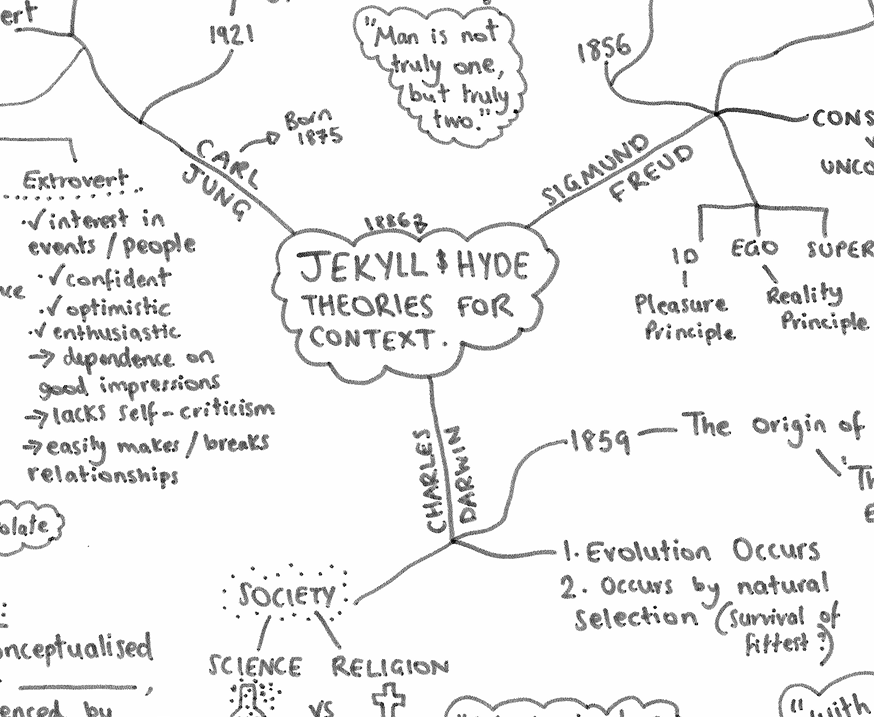 ert
1921
"Man is not
truly one,
but truly
two."
1856
Born
1875
CARL
JUNG
SIGMUND
FREUD
CONS
UNCO
ID
EGO
SUPER
Pleasure
Principle
Reality
Principle
1886
JEKYLL & HYDE
THEORIES FOR
CONTEXT.
Extrovert
✓ interest in
events / people
✓ confident
✓ optimistic
✓ enthusiastic
→ dependence on
good impressions
→ lacks self-criticism
→ easily makes / breaks
relationships
nce
olate
CHARLES
DARWIN
1859 — The Origin of
'Th
E
1. Evolution Occurs
2. Occurs by natural
selection (survival of
fittest?)
SOCIETY
SCIENCE RELIGION
VS
onceptualised
enced by
"with